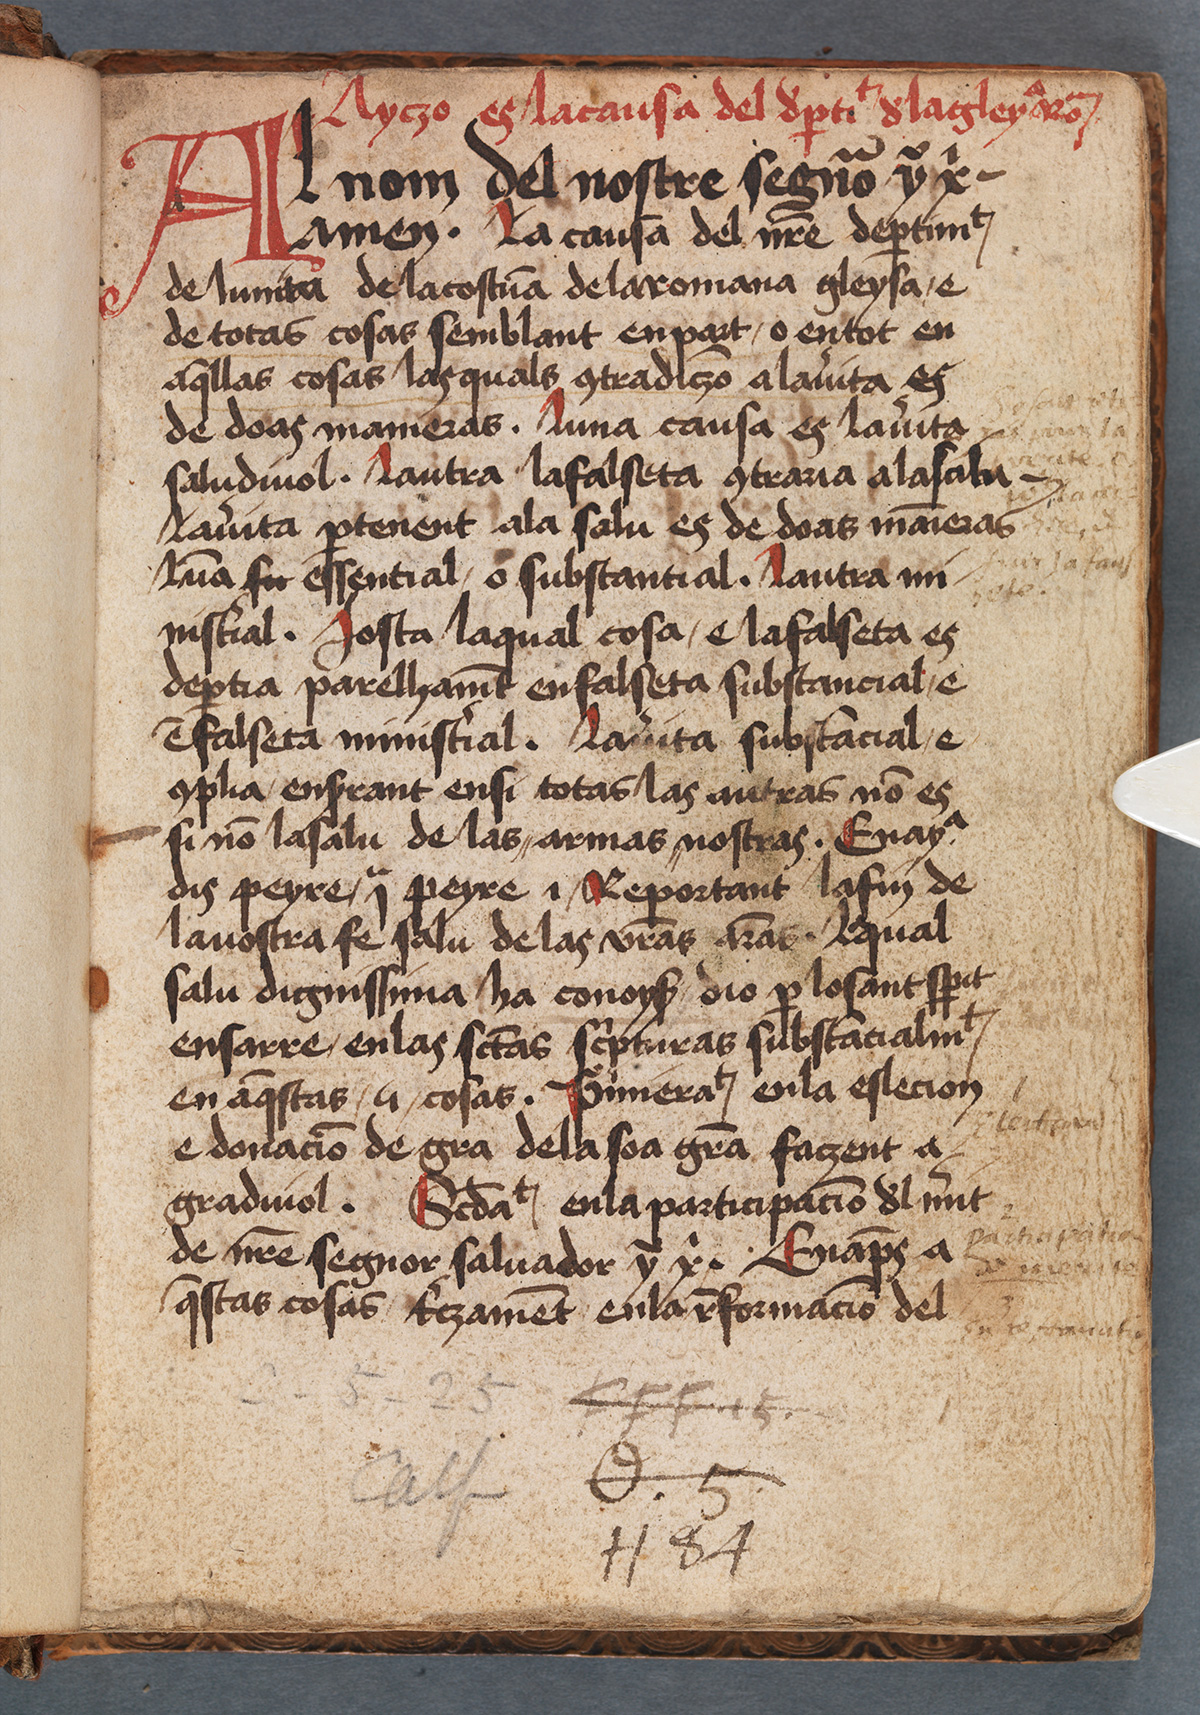 Ayczo es la causa del dꝑtit d' la gleya Ro
Al nom del nostre segnō yͮ xͥ
Amen. La causa del nr̄e deꝑtimt
de lunita de la costūa de la romana gleysa / e
de totas cosas semblant en part / o en tot en
aq̄llas cosas las quals ꝯtradiczō a la v̓ita es
de doas manieras. Luna causa es la v̓ita
saludivol. Lautra la falseta ꝯtraria a la salu
La v̓ita ꝑtenent a la salu es de doas māieras
Lūa es essential / o substantial. Lautra mi
nist̓ial. Josta la qual cosa / e la falseta es
deꝑtia parelhamēt en falseta substancial / e
ē falseta minist̓ial. La v̓ita substācial / e
ꝯplia / ensẏrant en si totas las autras nō es
si nō la salu de las armas nostras. Enayͣ
dis peyre / j peyre i / Reportant la fin de
la vostra fe salu de las vr̄as ar̄as. Lqual
salu dignissima ha conoysꝰ dio ꝑ lo sant sꝑit
ensarre / en las sct̄as sc̓pturas substācialmt
en aq̄stas / 4 / cosas. P̓imierat en la eslecion
e donaciō de gra de la soa gr̄a faczent a
gradivol. Sc̄dat en la participaciō dl m̓it
de nr̄e segnor salvador yͮ xͥ. Enap̄s a
q̄stas cosas t̓czamēt en la r̄formaciō del
2 - 5 - 25
Calf
O. 5.
H 84